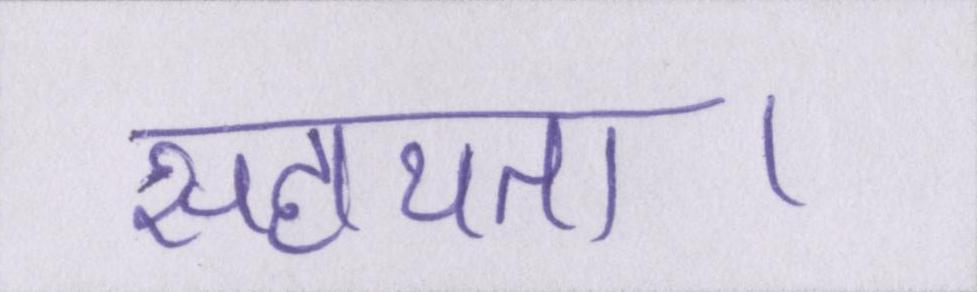 सहायता ।